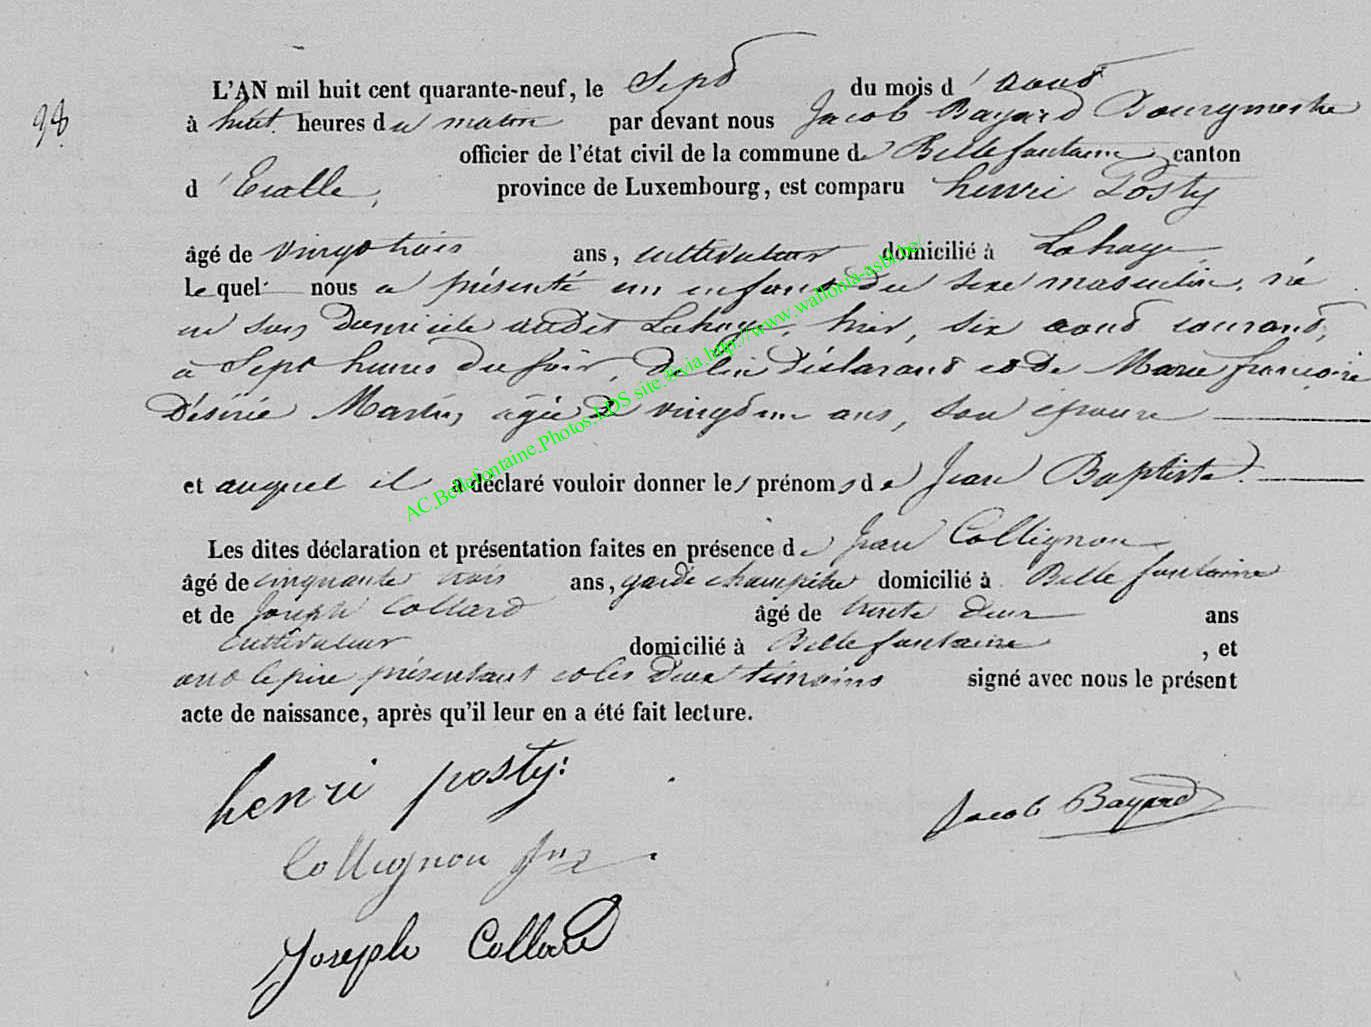 L'AN mil huit cent quarante-neuf, le Sept du mois d'aout
98
à huit heures du matin par devant nous Jacob Bayard Bourgmestre
officier de l'état civil de la commune de Bellefontaine canton
d'Etalle, province de Luxembourg, est comparu henri Posty
âgé de vingt trois ans, cultivateur domicilié à Lahage
Lequel nous a présenté un enfant du sexe masculin, né
en son domicile audit Lahage, hier, six aout courant,
à Sept heures du soir, de lui déclarant et de Marie françoise
Désirée Martin, agée de vingt un ans, son epouse
et auquel il a déclaré vouloir donner les prénoms de Jean Baptiste.
Les dites déclaration et présentation faites en présence de Jean Collignon
âgé de cinquante trois ans, garde champetre domicilié à Bellefontaine
et de Joseph Collard âgé de trente deux ans
cultivateur domicilié à Bellefontaine, et
ont le pere présentant et les deux témoins signé avec nous le présent
acte de naissance, après qu'il leur en a été fait lecture.
henri posty
Jacob Bayard
Collignon
Joseph Collard
AC.Bellefontaine.Photos.LDS site.&via.http://www.wallonia-asbl.be/